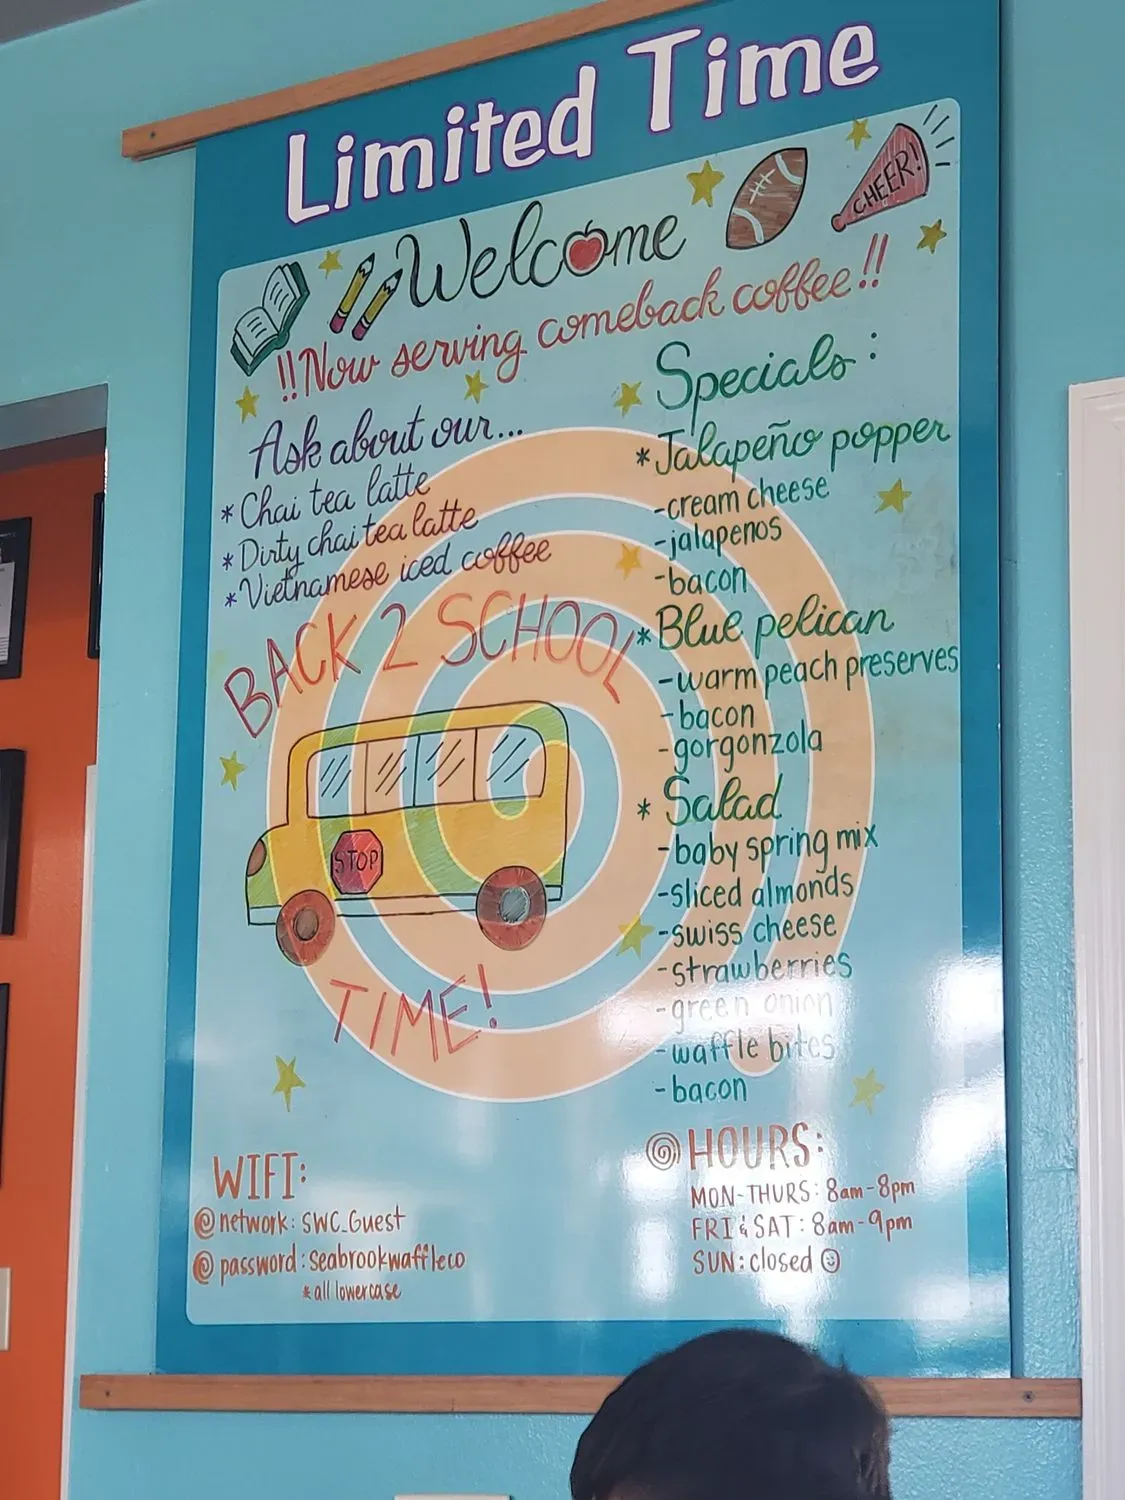 Limited Time
Welcome
CHEER!
!!Now serving comeback coffee!!
Ask about our...
* Chai tea latte
* Dirty chai tea latte
* Vietnamese iced coffee
BACK 2 SCHOOL
STOP
TIME!
Specials:
* Jalapeño popper
-cream cheese
-jalapenos
-bacon
* Blue pelican
-warm peach preserves
-bacon
-gorgonzola
* Salad
-baby spring mix
-sliced almonds
-swiss cheese
-strawberries
-green onion
-waffle bites
-bacon
WIFI:
network: SWC_Guest
password: seabrookwaffleco
* all lowercase
HOURS:
MON-THURS: 8am-8pm
FRI & SAT: 8am-9pm
SUN: closed ☺